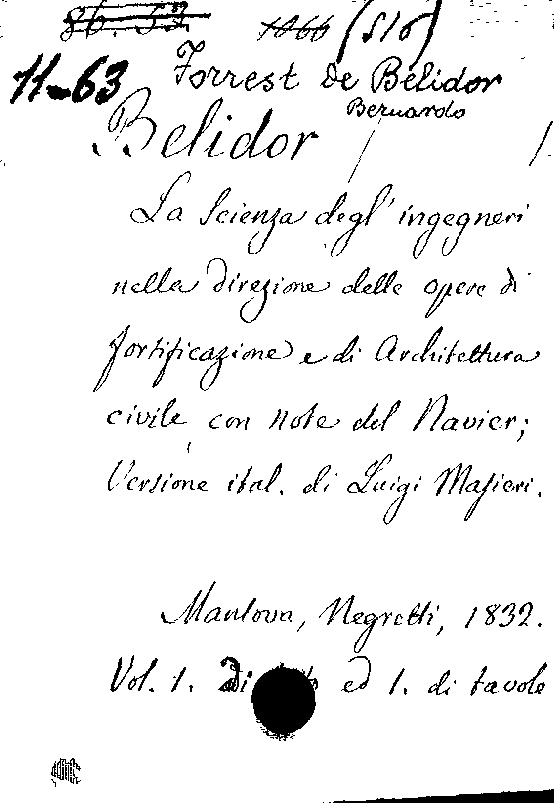 1066 (S16)
11-63 Forrest de Belidor
Bernardo
Belidor
La Scienza degl' ingegneri
nella direzione delle opere di
fortificazione e di Architettura
civile con note del Navier;
Versione ital. di Luigi Masieri.
Mantova, Negretti, 1832.
Vol. 1. Di ed 1. di tavole